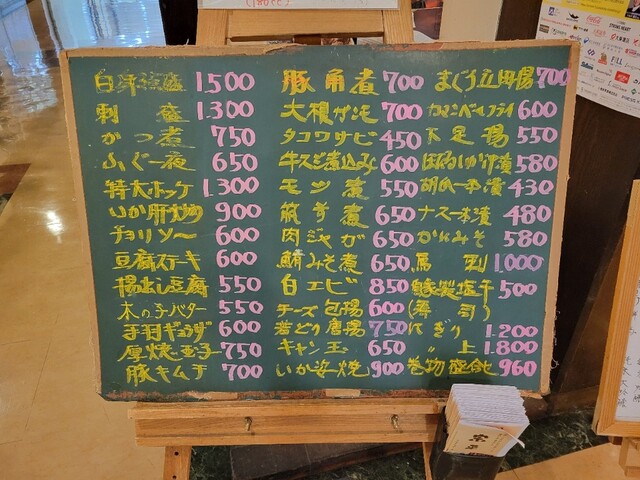 白身活盛 1,500
刺 盛 1,300
かつ煮 750
ふぐ一夜 650
特大ホッケ 1,300
いか肝炒め 900
チョリソー 600
豆腐ステキ 600
揚出し豆腐 550
木の子バター 550
手羽ギョウザ 600
厚焼玉子 750
豚キムチ 700
豚角煮 700
大根サラダ 700
タコワサビ 450
牛スジ煮込み 600
モツ煮 550
筑前煮 650
肉ジャガ 650
鯖みそ煮 650
白エビ 850
チーズ包揚 600
若どり唐揚 750
キャン玉 650
いか姿焼 900
まぐろ立田揚 700
カマンベールフライ 600
下足揚 550
ほたるいか沖漬 580
胡瓜一本漬 430
ナス一本漬 480
かにみそ 580
馬 刺 1,000
自家製塩干 500
(寿 司)
にぎり 1,200
〃 上 1,800
巻物盛合せ 960